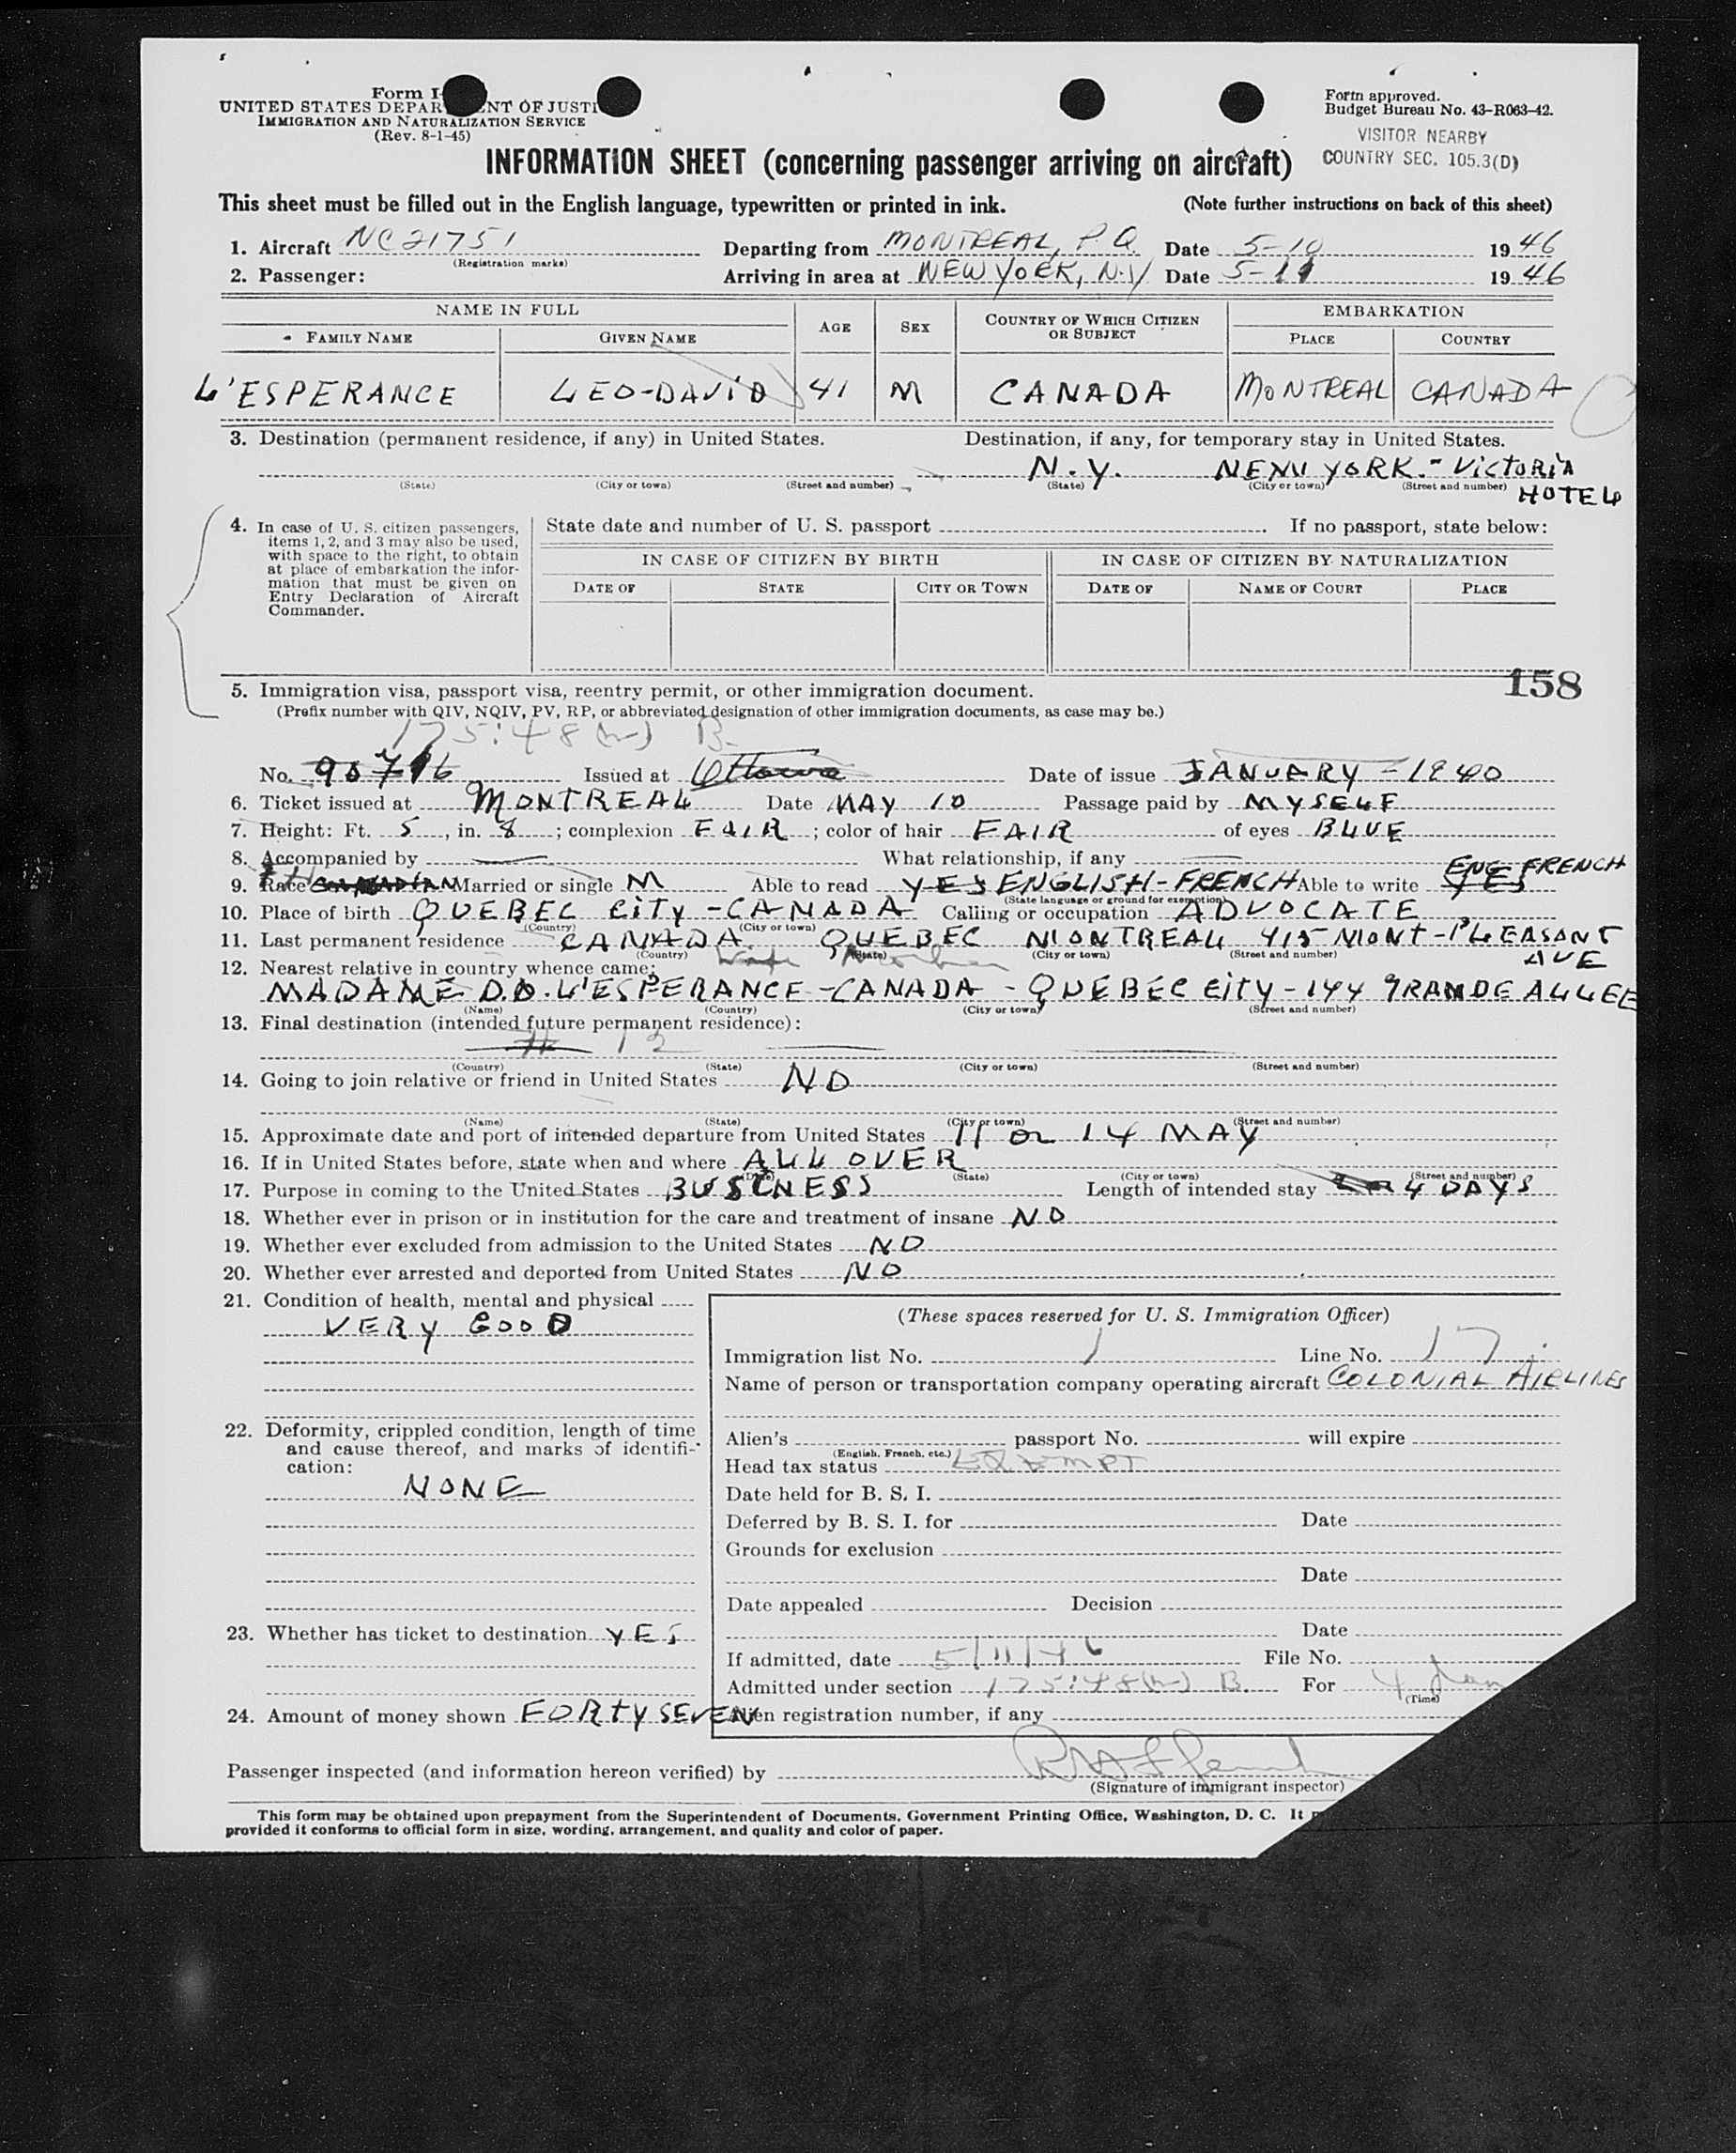 Form I-
UNITED STATES DEPAR NT OF JUSTI
IMMIGRATION AND NATURALIZATION SERVICE
(Rev. 8-1-45)
Form approved.
Budget Bureau No. 43-R063-42.
VISITOR NEARBY
COUNTRY SEC. 105.3(D)
INFORMATION SHEET (concerning passenger arriving on aircraft)
This sheet must be filled out in the English language, typewritten or printed in ink. (Note further instructions on back of this sheet)
1. Aircraft NC21751 Departing from MONTREAL, P.Q. Date 5-10 1946
(Registration marks)
2. Passenger: Arriving in area at NEW YORK, N.Y. Date 5-11 1946
NAME IN FULL AGE SEX COUNTRY OF WHICH CITIZEN OR SUBJECT EMBARKATION
FAMILY NAME GIVEN NAME PLACE COUNTRY
L'ESPERANCE LEO-DAVID 41 M CANADA MONTREAL CANADA
3. Destination (permanent residence, if any) in United States. Destination, if any, for temporary stay in United States.
N.Y. NEW YORK.- VICTORIA
(State) (City or town) (Street and number) (State) (City or town) (Street and number) HOTEL
4. In case of U. S. citizen passengers, items 1, 2, and 3 may also be used, with space to the right, to obtain at place of embarkation the information that must be given on Entry Declaration of Aircraft Commander.
State date and number of U. S. passport If no passport, state below:
IN CASE OF CITIZEN BY BIRTH IN CASE OF CITIZEN BY NATURALIZATION
DATE OF STATE CITY OR TOWN DATE OF NAME OF COURT PLACE
158
5. Immigration visa, passport visa, reentry permit, or other immigration document.
(Prefix number with QIV, NQIV, PV, RP, or abbreviated designation of other immigration documents, as case may be.)
175:48 B.
No. 90716 Issued at Ottawa Date of issue JANUARY - 1940
6. Ticket issued at MONTREAL Date MAY 10 Passage paid by MYSELF
7. Height: Ft. 5, in. 8; complexion FAIR; color of hair FAIR of eyes BLUE
8. Accompanied by — What relationship, if any —
9. Race CANADIAN Married or single M Able to read YES ENGLISH-FRENCH Able to write YES ENG FRENCH
(State language or ground for exemption)
10. Place of birth QUEBEC CITY - CANADA Calling or occupation ADVOCATE
(Country) (City or town)
11. Last permanent residence CANADA QUEBEC MONTREAL 415 MONT-PLEASANT AVE
(Country) (State) (City or town) (Street and number)
12. Nearest relative in country whence came:
MADAME D.O. L'ESPERANCE - CANADA - QUEBEC CITY - 144 GRANDE ALLEE
(Name) (Country) (City or town) (Street and number)
13. Final destination (intended future permanent residence):
(Country) (State) (City or town) (Street and number)
14. Going to join relative or friend in United States NO
(Name) (State) (City or town) (Street and number)
15. Approximate date and port of intended departure from United States 11 or 14 MAY
16. If in United States before, state when and where ALL OVER
(Date) (State) (City or town) (Street and number)
17. Purpose in coming to the United States BUSINESS Length of intended stay 4 DAYS
18. Whether ever in prison or in institution for the care and treatment of insane NO
19. Whether ever excluded from admission to the United States NO
20. Whether ever arrested and deported from United States NO
21. Condition of health, mental and physical
VERY GOOD
22. Deformity, crippled condition, length of time and cause thereof, and marks of identification:
NONE
23. Whether has ticket to destination YES
24. Amount of money shown FORTY SEVEN
(These spaces reserved for U. S. Immigration Officer)
Immigration list No. 1 Line No. 17
Name of person or transportation company operating aircraft COLONIAL AIRLINES
Alien's passport No. will expire
(English, French, etc.)
Head tax status EXEMPT
Date held for B. S. I.
Deferred by B. S. I. for Date
Grounds for exclusion
Date
Date appealed Decision
Date
If admitted, date 5/11/46 File No.
Admitted under section 175:48 B. For 4 days
(Time)
Alien registration number, if any
Passenger inspected (and information hereon verified) by
(Signature of immigrant inspector)
This form may be obtained upon prepayment from the Superintendent of Documents, Government Printing Office, Washington, D. C. It
provided it conforms to official form in size, wording, arrangement, and quality and color of paper.